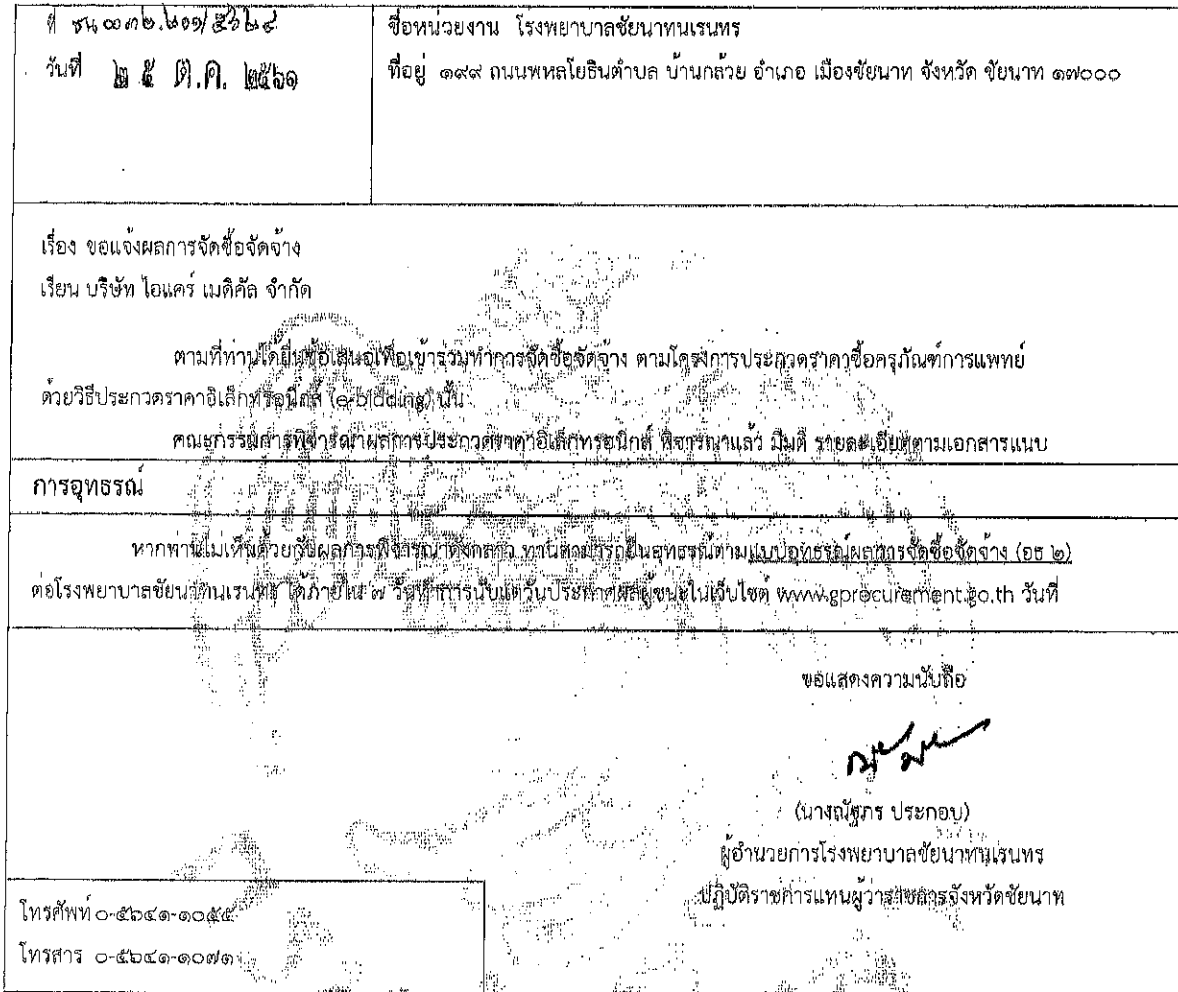 ที่ ชน ๐๐๓๒.๒๐๑/๕๖๒๙
วันที่ ๒๕ ต.ค. ๒๕๖๑
ชื่อหน่วยงาน โรงพยาบาลชัยนาทนเรนทร
ที่อยู่ ๑๙๙ ถนนพหลโยธินตำบล บ้านกล้วย อำเภอ เมืองชัยนาท จังหวัด ชัยนาท ๑๗๐๐๐
เรื่อง ขอแจ้งผลการจัดซื้อจัดจ้าง
เรียน บริษัท ไอแคร์ เมดิคัล จำกัด
ตามที่ท่านได้ยื่นข้อเสนอเพื่อเข้าร่วมทำการจัดซื้อจัดจ้าง ตามโครงการประกวดราคาซื้อครุภัณฑ์การแพทย์
ด้วยวิธีประกวดราคาอิเล็กทรอนิกส์ (e-bidding) นั้น
คณะกรรมการพิจารณาผลการประกวดราคาอิเล็กทรอนิกส์ พิจารณาแล้ว มีมติ รายละเอียดตามเอกสารแนบ
การอุทธรณ์
หากท่านไม่เห็นด้วยกับผลการพิจารณาดังกล่าว ท่านสามารถยื่นอุทธรณ์ตามแบบอุทธรณ์ผลการจัดซื้อจัดจ้าง (อธ ๒)
ต่อโรงพยาบาลชัยนาทนเรนทร ได้ภายใน ๗ วันทำการนับแต่วันประกาศผลผู้ชนะในเว็บไซต์ www.gprocurement.go.th วันที่
ขอแสดงความนับถือ
(นางณัฐภร ประกอบ)
ผู้อำนวยการโรงพยาบาลชัยนาทนเรนทร
ปฏิบัติราชการแทนผู้ว่าราชการจังหวัดชัยนาท
โทรศัพท์ ๐-๕๖๔๑-๑๐๕๕
โทรสาร ๐-๕๖๔๑-๑๐๗๑